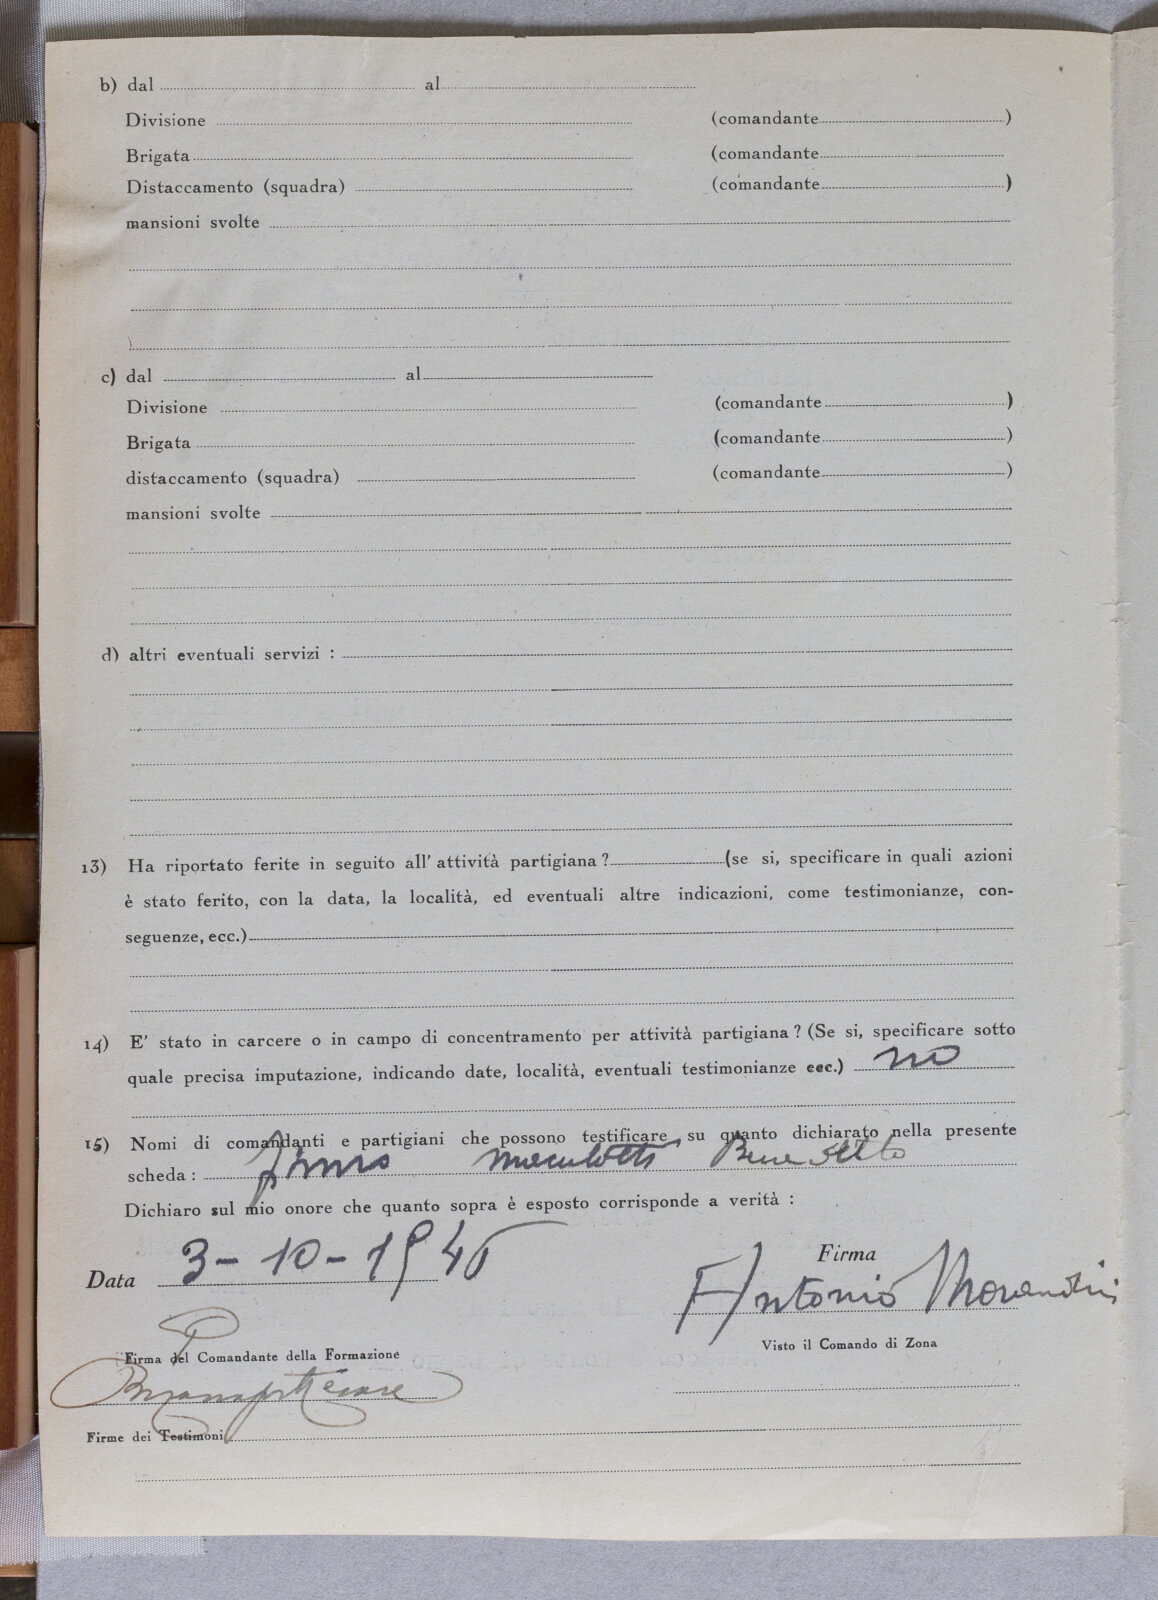 b) dal al
Divisione (comandante )
Brigata (comandante
Distaccamento (squadra) (comandante )
mansioni svolte
c) dal al
Divisione (comandante )
Brigata (comandante )
distaccamento (squadra) (comandante )
mansioni svolte
d) altri eventuali servizi :
13) Ha riportato ferite in seguito all' attività partigiana ? (se si, specificare in quali azioni
è stato ferito, con la data, la località, ed eventuali altre indicazioni, come testimonianze, con-
seguenze, ecc.)
14) E' stato in carcere o in campo di concentramento per attività partigiana ? (Se si, specificare sotto
quale precisa imputazione, indicando date, località, eventuali testimonianze eec.) no
15) Nomi di comandanti e partigiani che possono testificare su quanto dichiarato nella presente
scheda : Maculotti Benedetto
Dichiaro sul mio onore che quanto sopra è esposto corrisponde a verità :
Data 3-10-1945
Firma
Antonio Morandini
Visto il Comando di Zona
Firma del Comandante della Formazione
Firme dei Testimoni